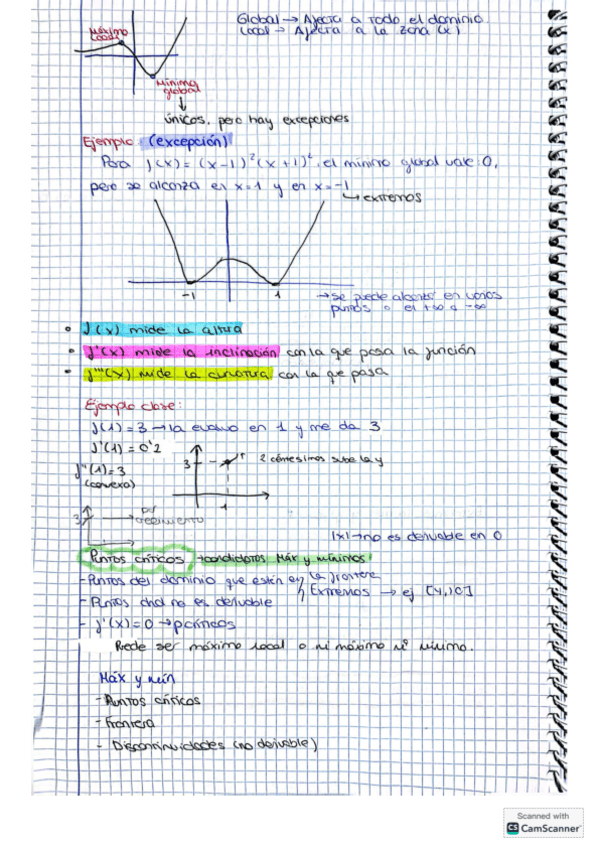 Máximo local
Global → Afecta a todo el dominio
Local → Afecta a la zona (x)
Mínimo global
↓
únicos, pero hay excepciones
Ejemplo (excepción)
Para f(x) = (x-1)²(x+1)², el mínimo global vale 0,
pero se alcanza en x=1 y en x=-1
↳ extremos
-1 1
→ se puede alcanzar en varios
puntos o el +∞ o -∞
• f(x) mide la altura
• f'(x) mide la inclinación con la que pasa la función
• f''(x) mide la curvatura con la que pasa
Ejemplo clase:
f(1) = 3 → la evaluo en 1 y me da 3
f'(1) = 0'2
f''(1) = 3
(convexa)
3 1
2 céntesimos sube la y
3
crecimiento
|x| → no es derivable en 0
Puntos críticos → candidatos Máx y mínimos
- Puntos del dominio que estén en la frontera
Extremos → ej [4,10]
- Puntos no es derivable
- f'(x) = 0 → p críticos
Puede ser máximo local o ni máximo ni mínimo.
Máx y mín
- Puntos críticos
- Frontera
- Discontinuidades (no derivable)
Scanned with
CS CamScanner